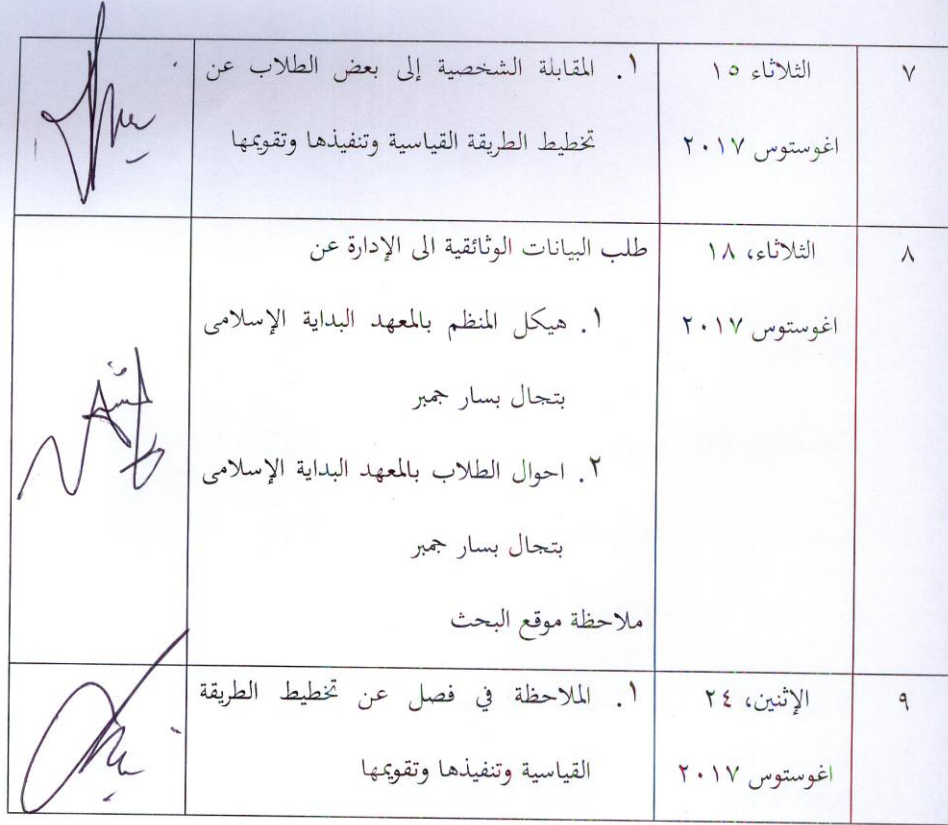 ٧
الثلاثاء ١٥
اغوستوس ٢٠١٧
١. المقابلة الشخصية إلى بعض الطلاب عن
تخطيط الطريقة القياسية وتنفيذها وتقويمها
٨
الثلاثاء، ١٨
اغوستوس ٢٠١٧
طلب البيانات الوثائقية الى الإدارة عن
١. هيكل المنظم بالمعهد البداية الإسلامى
بتجال بسار جمبر
٢. احوال الطلاب بالمعهد البداية الإسلامى
بتجال بسار جمبر
ملاحظة موقع البحث
٩
الإثنين، ٢٤
اغوستوس ٢٠١٧
١. الملاحظة في فصل عن تخطيط الطريقة
القياسية وتنفيذها وتقويمها